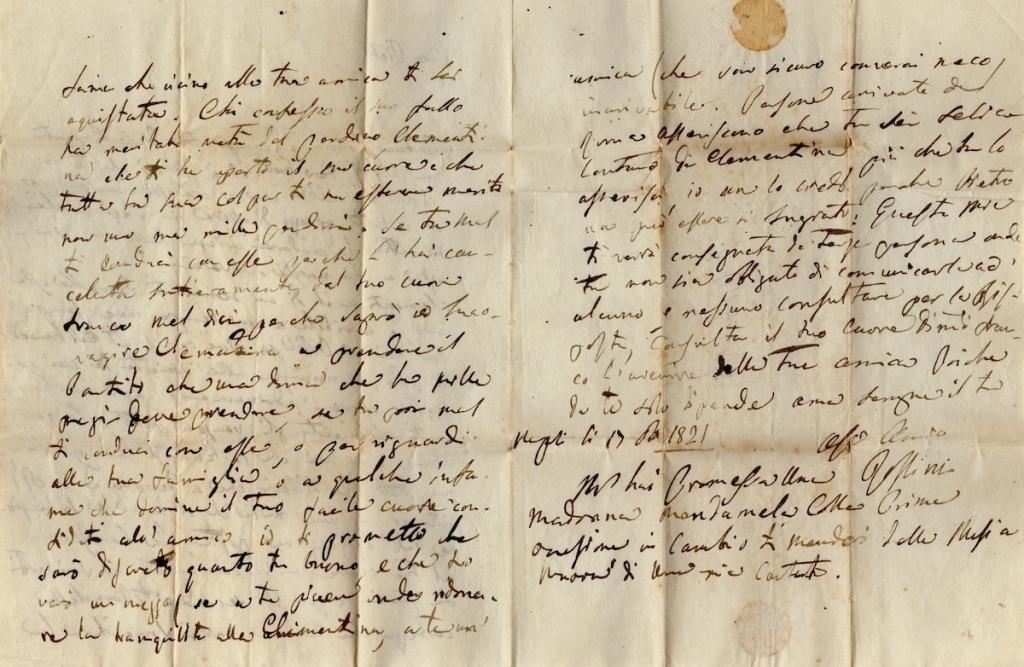 che vicino alla tua amica ti sei
aquistata. Chi confessa il suo fallo
ha meritato metà del perdono Clementi:
na che ti ha aperto il suo cuore e che
tutta la sua colpa ti fa essere merita
non uno ma mille perdoni. Se tu mal
ti conduci con essa perche l'hai can-
cellata interamente dal tuo cuore
franco mel dici perche saprò io
Clementina a prendere il
Partito che una donna che ha mille
pregi deve prendere, se tu poi mal
ti conduci con essa, o per riguardi
alla tua famiglia, o a qualche infa-
me che domini il tuo facile cuore con-
al' amico io ti prometto che
sarò discreto quanto tu buono e che
un mezzo se a te piacerà onde ridona-
re la tranquillità alla Chiementina, a te un'
amica (che son sicuro converrai meco)
invariabile. Persone arrivate da
Roma asseriscono che tu sei felice
lontano da Clementina più che tu lo
asserisci, io non lo credo perche Pietro
non può essere si Ingrato: Questa mia
ti verrà consegnata da terza persona onde
tu non sia obbligato di comunicarla ad
alcuno e nessuno consultare per la Ris-
posta, Consulta il tuo cuore dimmi fran-
co l'avvenire della tua amica Poiche
da te solo dipende ama sempre il tuo
Napoli li 17 1821
aff Amico
Rossini
Mi hai Promessa Una
Madonna mandamela Colla Prima
occasione in Cambio ti manderò della Musica
nuova di